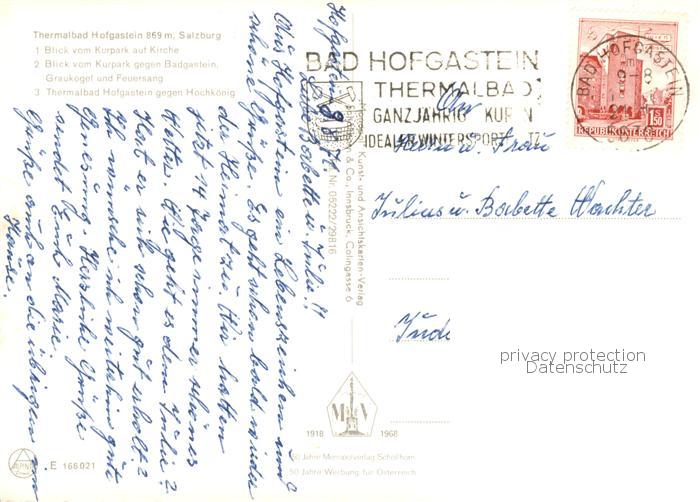 Thermalbad Hofgastein 869 m, Salzburg
1 Blick vom Kurpark auf Kirche
2 Blick vom Kurpark gegen Badgastein,
Graukogel und Feuersang
3 Thermalbad Hofgastein gegen Hochkönig
BAD HOFGASTEIN
THERMALBAD
GANZJÄHRIG KUREN
IDEALER WINTERSPORT
BAD HOFGASTEIN
REPUBLIK ÖSTERREICH
1.50
Hofgastein
Liebe Babette u. Julius!!
Aus Hofgastein ein Lebenszeichen und
schöne Grüße. Es geht schon bald wieder
der Heimat zu. Wir hatten
jetzt 14 Tage immer schönes
Wetter. Wie geht es dem Julius?
Hat er sich schon gut erholt?
Ich wünsche ihm weiterhin gute
Besserung. Herzliche Grüße
sendet Euch Marie.
Grüße auch an die übrigen im
Hause.
Kunst- und Ansichtskarten-Verlag
& Co., Innsbruck, Colingasse 6
Nr. 05222/29816
An
Herrn u. Frau
Julius u. Babette Wachter
privacy protection
Datenschutz
M V
1918 1968
50 Jahre Monopolverlag Schöllhorn
50 Jahre Werbung für Österreich
ALPINE
E 166021